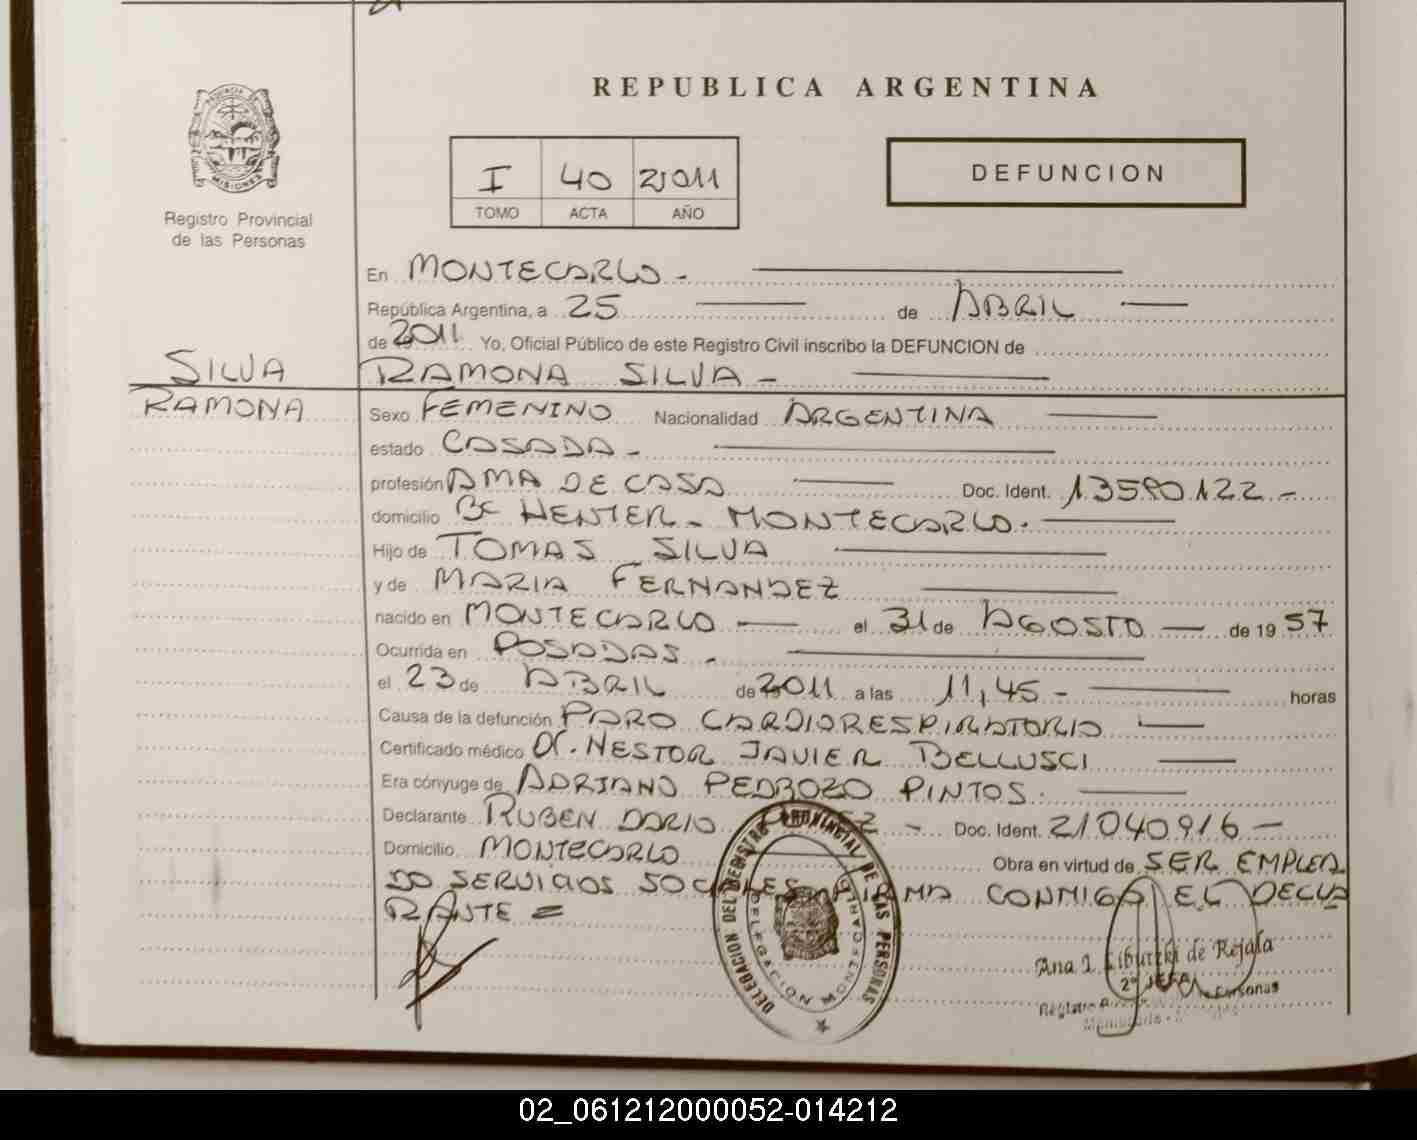 REPUBLICA ARGENTINA
PROVINCIA
MISIONES
Registro Provincial
de las Personas
I 40 2011
TOMO ACTA AÑO
DEFUNCION
En MONTECARLO -
República Argentina, a 25 de ABRIL
de 2011 Yo, Oficial Público de este Registro Civil inscribo la DEFUNCION de
SILVA
RAMONA SILVA -
RAMONA
Sexo FEMENINO Nacionalidad ARGENTINA
estado CASADA -
profesión AMA DE CASA Doc. Ident. 13590122 -
domicilio Bº HENTER - MONTECARLO.
Hijo de TOMAS SILVA
y de MARIA FERNANDEZ
nacido en MONTECARLO el 31 de AGOSTO de 19 57
Ocurrida en POSADAS -
el 23 de ABRIL de 2011 a las 11,45 - horas
Causa de la defunción PARO CARDIORESPIRATORIO
Certificado médico Dr. NESTOR JAVIER BELLUSCI
Era cónyuge de ADRIANO PEDROZO PINTOS.
Declarante RUBEN DARIO - Doc. Ident. 21040916 -
Domicilio MONTECARLO Obra en virtud de SER EMPLEA
DO SERVICIOS SOCIALES FIRMA CONMIGO EL DECLA
RANTE =
DELEGACION DEL REGISTRO PROVINCIAL DE LAS PERSONAS
DELEGACION MONTECARLO
Ana I. de Rejala
2º JEFA
Registro Personas
02_061212000052-014212